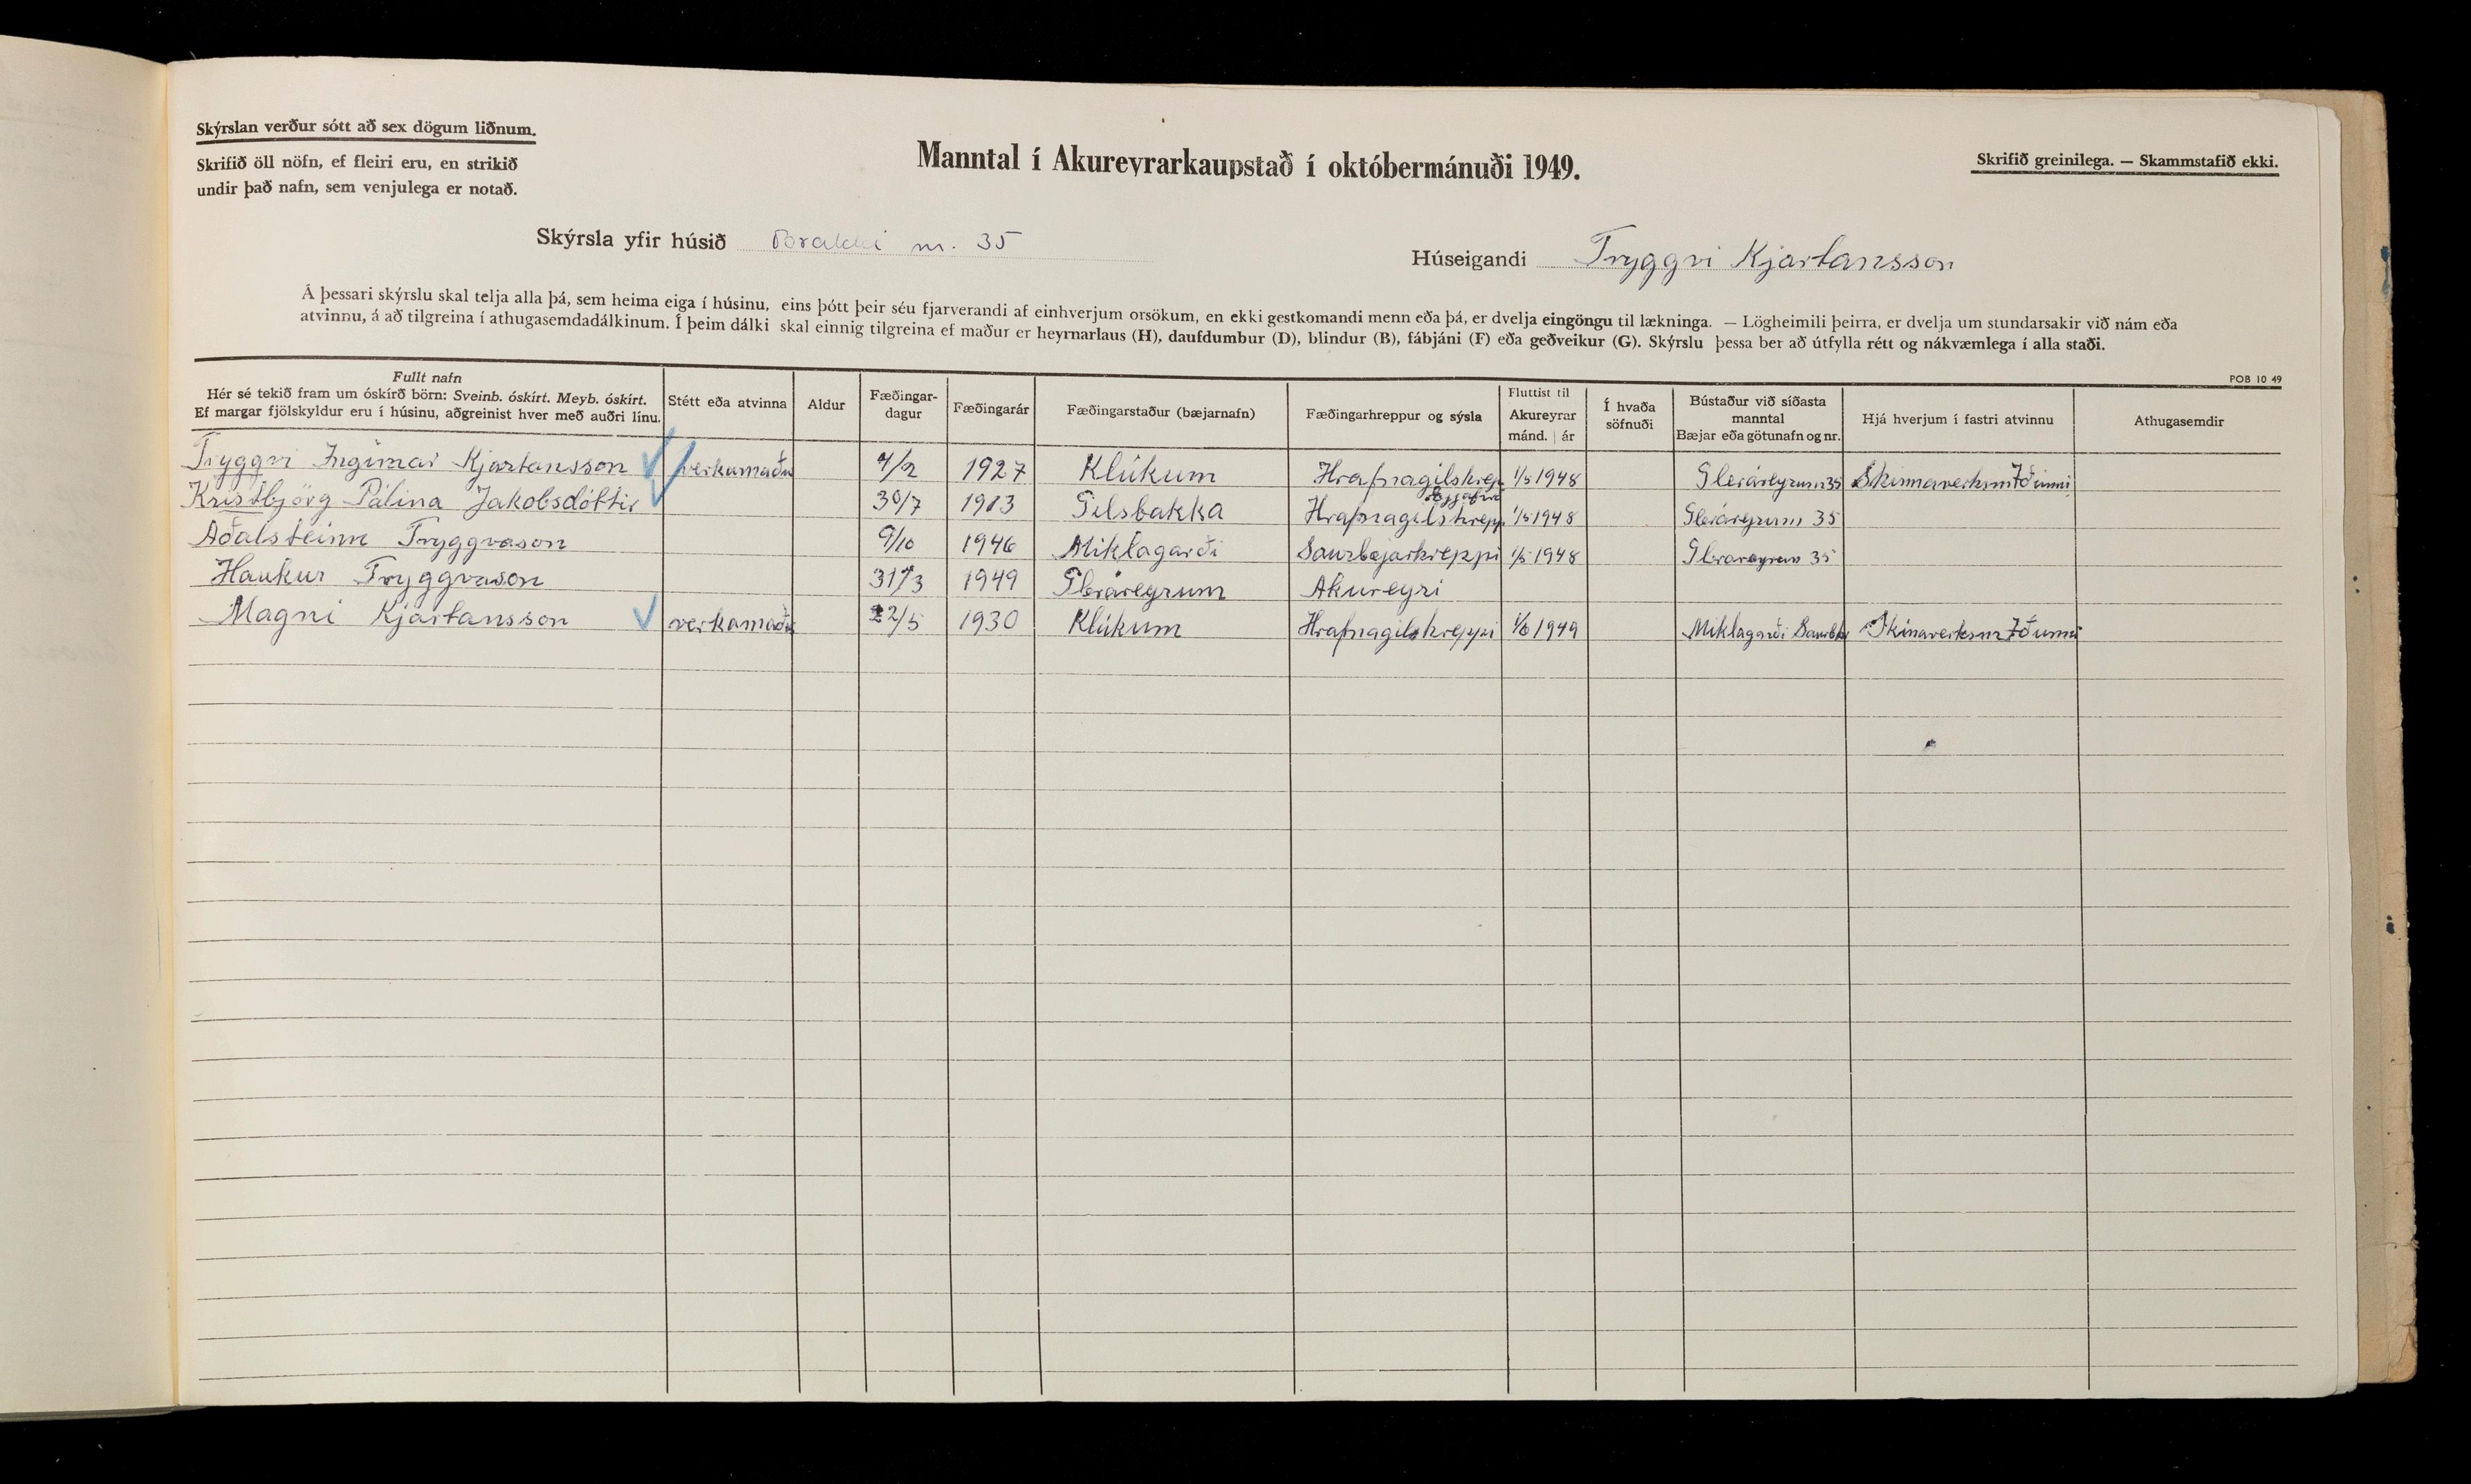 Skýrslan verður sótt að sex dögum liðnum.
Skrifið öll nöfn, ef fleiri eru, en strikið
undir það nafn, sem venjulega er notað.
Manntal í Akureyrarkaupstað í októbermánuði 1949.
Skrifið greinilega. — Skammstafið ekki.
Skýrsla yfir húsið Brakki nr. 35
Húseigandi Tryggvi Kjartansson
Á þessari skýrslu skal telja alla þá, sem heima eiga í húsinu, eins þótt þeir séu fjarverandi af einhverjum orsökum, en ekki gestkomandi menn eða þá, er dvelja eingöngu til lækninga. — Lögheimili þeirra, er dvelja um stundarsakir við nám eða
atvinnu, á að tilgreina í athugasemdadálkinum. Í þeim dálki skal einnig tilgreina ef maður er heyrnarlaus (H), daufdumbur (D), blindur (B), fábjáni (F) eða geðveikur (G). Skýrslu þessa ber að útfylla rétt og nákvæmlega í alla staði.
POB 10 49
Fullt nafn
Hér sé tekið fram um óskírð börn: Sveinb. óskírt. Meyb. óskírt.
Ef margar fjölskyldur eru í húsinu, aðgreinist hver með auðri línu.
Stétt eða atvinna
Aldur
Fæðingar-
dagur
Fæðingarár
Fæðingarstaður (bæjarnafn)
Fæðingarhreppur og sýsla
Fluttist til
Akureyrar
mánd. | ár
Í hvaða
söfnuði
Bústaður við síðasta
manntal
Bæjar eða götunafn og nr.
Hjá hverjum í fastri atvinnu
Athugasemdir
Tryggvi Ingimar Kjartansson verkamaður 1927 Klúkum Hrafnagilshrepp 1/5 1948 Gleráreyrum 35 Skinnaverksm Iðunni
Kristbjörg Pálína Jakobsdóttir 30/7 1913 Gilsbakka Hrafnagilshrepp 1/5 1948 Gleráreyrum 35
Aðalsteinn Tryggvason 9/10 1946 Miklagarði Saurbæjarhreppi 1/5 1948 Gleráreyrum 35
Haukur Tryggvason 31/3 1949 Gleráreyrum Akureyri
Magni Kjartansson verkamaður 22/5 1930 Klúkum Hrafnagilshreppi 1949 Miklagarði Skinaverksm Iðunni